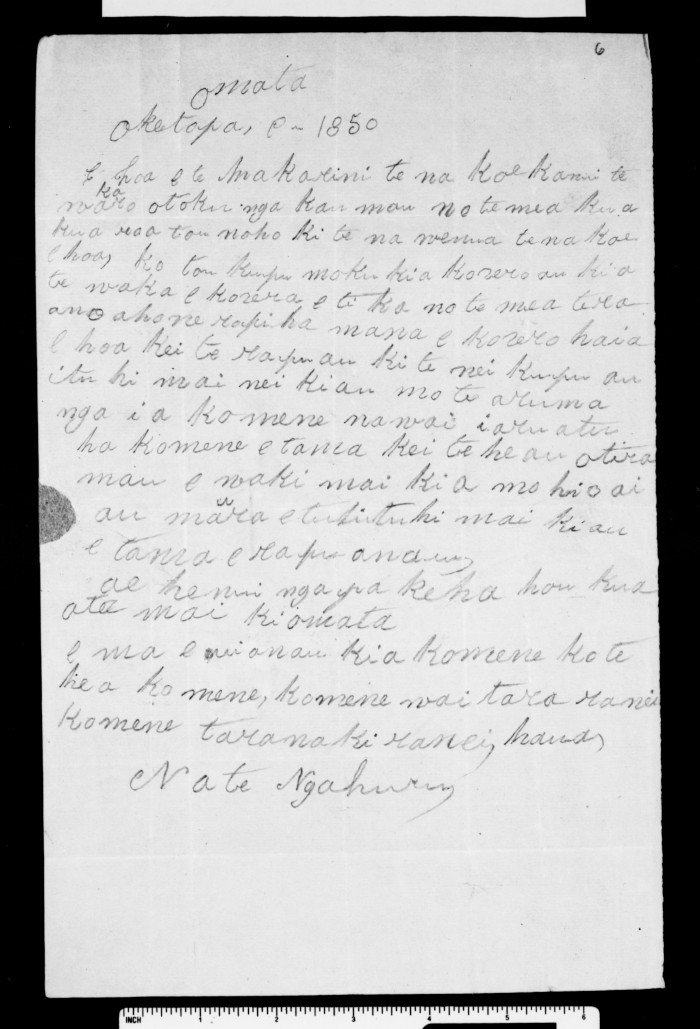 6
Omata
Oketopa, e - 1850
E hoa e te Makarini te na koe kanui te
ka
waro otoku nga kau mau no te mea kua
kua roa tou noho ki te na wenua tena koe
E hoa, ko tou kupu moku kia korero au ki a
te waka e korero e ti ka no te mea tera
ano ahone ropiha mana e korero haia
E hoa kei te rapu au ki te nei kupu au
i tu hi mai nei kiau mo te aruma
nga i a komene nawai i aru atu
ha komene e tama kei te he au otira
mau e waki mai ki a mo hio ai
au māra e tu tuhi mai kiau
e tama e rapu anau,
ae he nui nga pa keha hou kua
atae mai ki omata
e ma e ui anau kia komene ko te
hea komene, komene wai tara ranei
komene taranaki ranei, haua,
Na te Ngahuru,
INCH 1 2 3 4 5 6